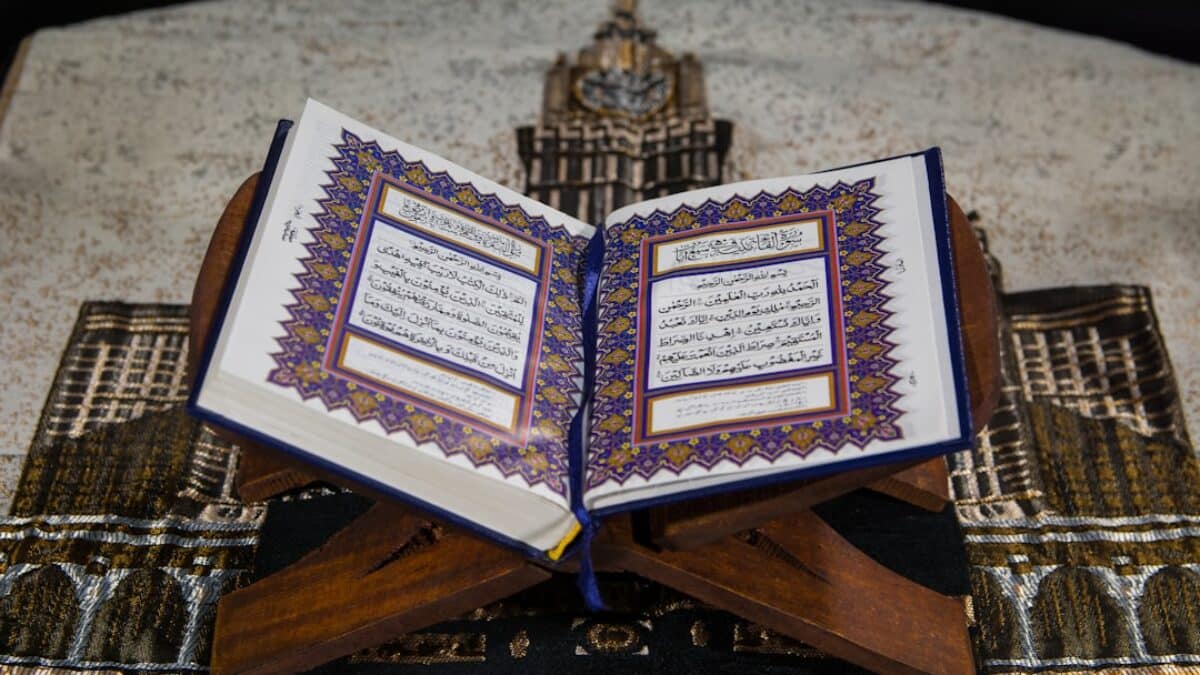 سُورَةُ الْفَاتِحَةِ
بِسْمِ اللهِ الرَّحْمٰنِ الرَّحِيْمِ
اَلْحَمْدُ لِلّٰهِ رَبِّ الْعٰلَمِيْنَ الرَّحْمٰنِ
الرَّحِيْمِ مٰلِكِ يَوْمِ الدِّيْنِ اِيَّاكَ نَعْبُدُ
وَاِيَّاكَ نَسْتَعِيْنُ اِهْدِنَا الصِّرَاطَ
الْمُسْتَقِيْمَ صِرَاطَ الَّذِيْنَ اَنْعَمْتَ عَلَيْهِمْ
غَيْرِ الْمَغْضُوْبِ عَلَيْهِمْ وَلَا الضَّآلِّيْنَ
بِسْمِ اللهِ الرَّحْمٰنِ الرَّحِيْمِ
الٓمّٓ ذٰلِكَ الْكِتٰبُ لَا رَيْبَ فِيْهِ هُدًى
لِّلْمُتَّقِيْنَ الَّذِيْنَ يُؤْمِنُوْنَ بِالْغَيْبِ وَ
يُقِيْمُوْنَ الصَّلٰوةَ وَمِمَّا رَزَقْنٰهُمْ يُنْفِقُوْنَ
وَالَّذِيْنَ يُؤْمِنُوْنَ بِمَآ اُنْزِلَ اِلَيْكَ وَمَآ
اُنْزِلَ مِنْ قَبْلِكَ وَبِالْاٰخِرَةِ هُمْ يُوْقِنُوْنَ